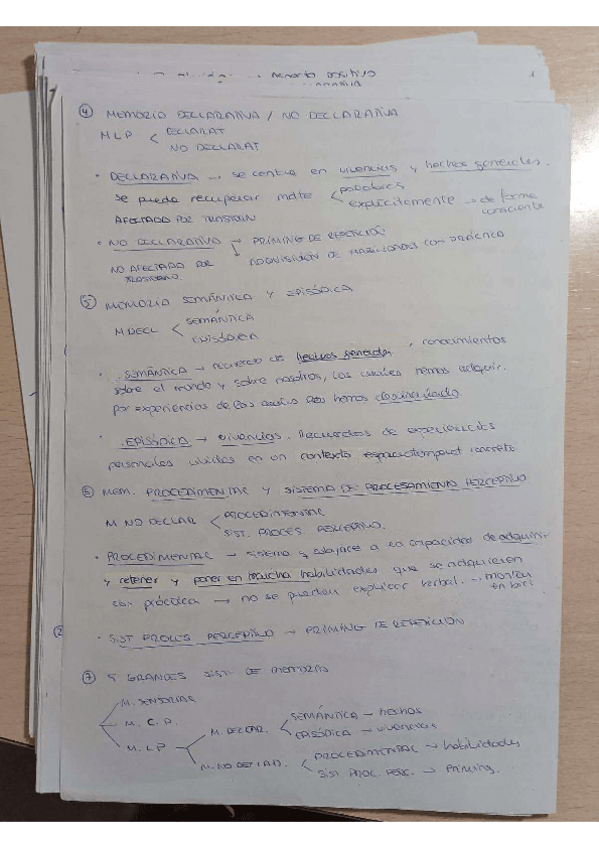 1
④ MEMORIA DECLARATIVA / NO DECLARATIVA
MLP < DECLARAT
NO DECLARAT
• DECLARATIVA → se centra en vivencias y hechos generales.
se puede recuperar mdte < palabras
explícitamente → de forma consciente
AFECTADO POR TRASTORN
• NO DECLARATIVA → PRIMING DE REPETICIÓN
ADQUISICIÓN DE HABILIDADES CON PRÁCTICA
NO AFECTADO POR
⑤ MEMORIA SEMÁNTICA Y EPISÓDICA
M DECL < SEMÁNTICA
EPISÓDICA
• SEMÁNTICA → recuerdo de hechos generales, conocimientos
sobre el mundo y sobre nosotros, los cuales hemos adquir.
por experiencias de las cuales nos hemos
• EPISÓDICA → vivencias. Recuerdos de experiencias
personales vividas en un contexto espaciotemporal concreto
⑥ MEM. PROCEDIMENTAL Y SISTEMA DE PROCESAMIENTO PERCEPTIVO
M NO DECLAR < PROCEDIMENTAL
SIST. PROCES PERCEPTIVO.
• PROCEDIMENTAL → sistema q subyace a la capacidad de adquirir
y retener y poner en marcha habilidades que se adquieren
con práctica → no se pueden explicar verbal. → montar
en bici
(2
• SIST PROCES PERCEPTIVO → PRIMING DE REPETICIÓN
⑦ 5 GRANDES SIST DE MEMORIA
M. SENSORIAL
M. C. P.
M. LP
M. DECLAR. < SEMÁNTICA → hechos
EPISÓDICA → vivencias
M. NO DECLAR. < PROCEDIMENTAL → habilidades
SIST PROC. PERC. → Priming.